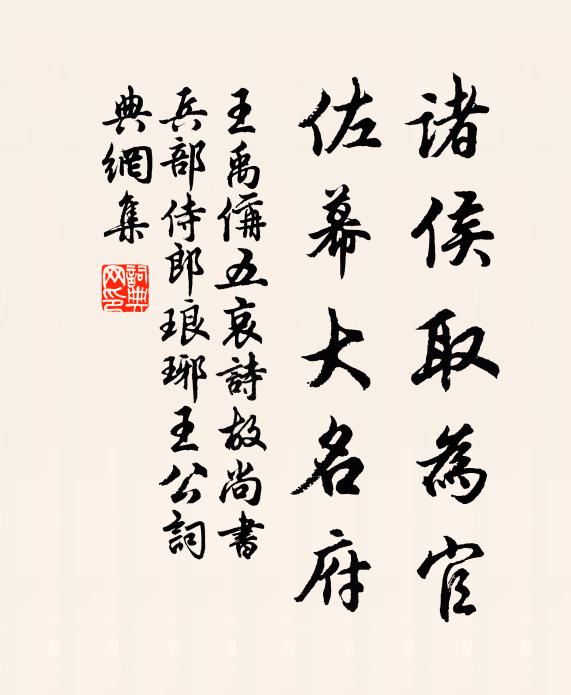 諸侯取為官
佐幕大名府
王禹偁五哀詩故尚書
兵部侍郎琅琊王公詞
典網集
詞典網印